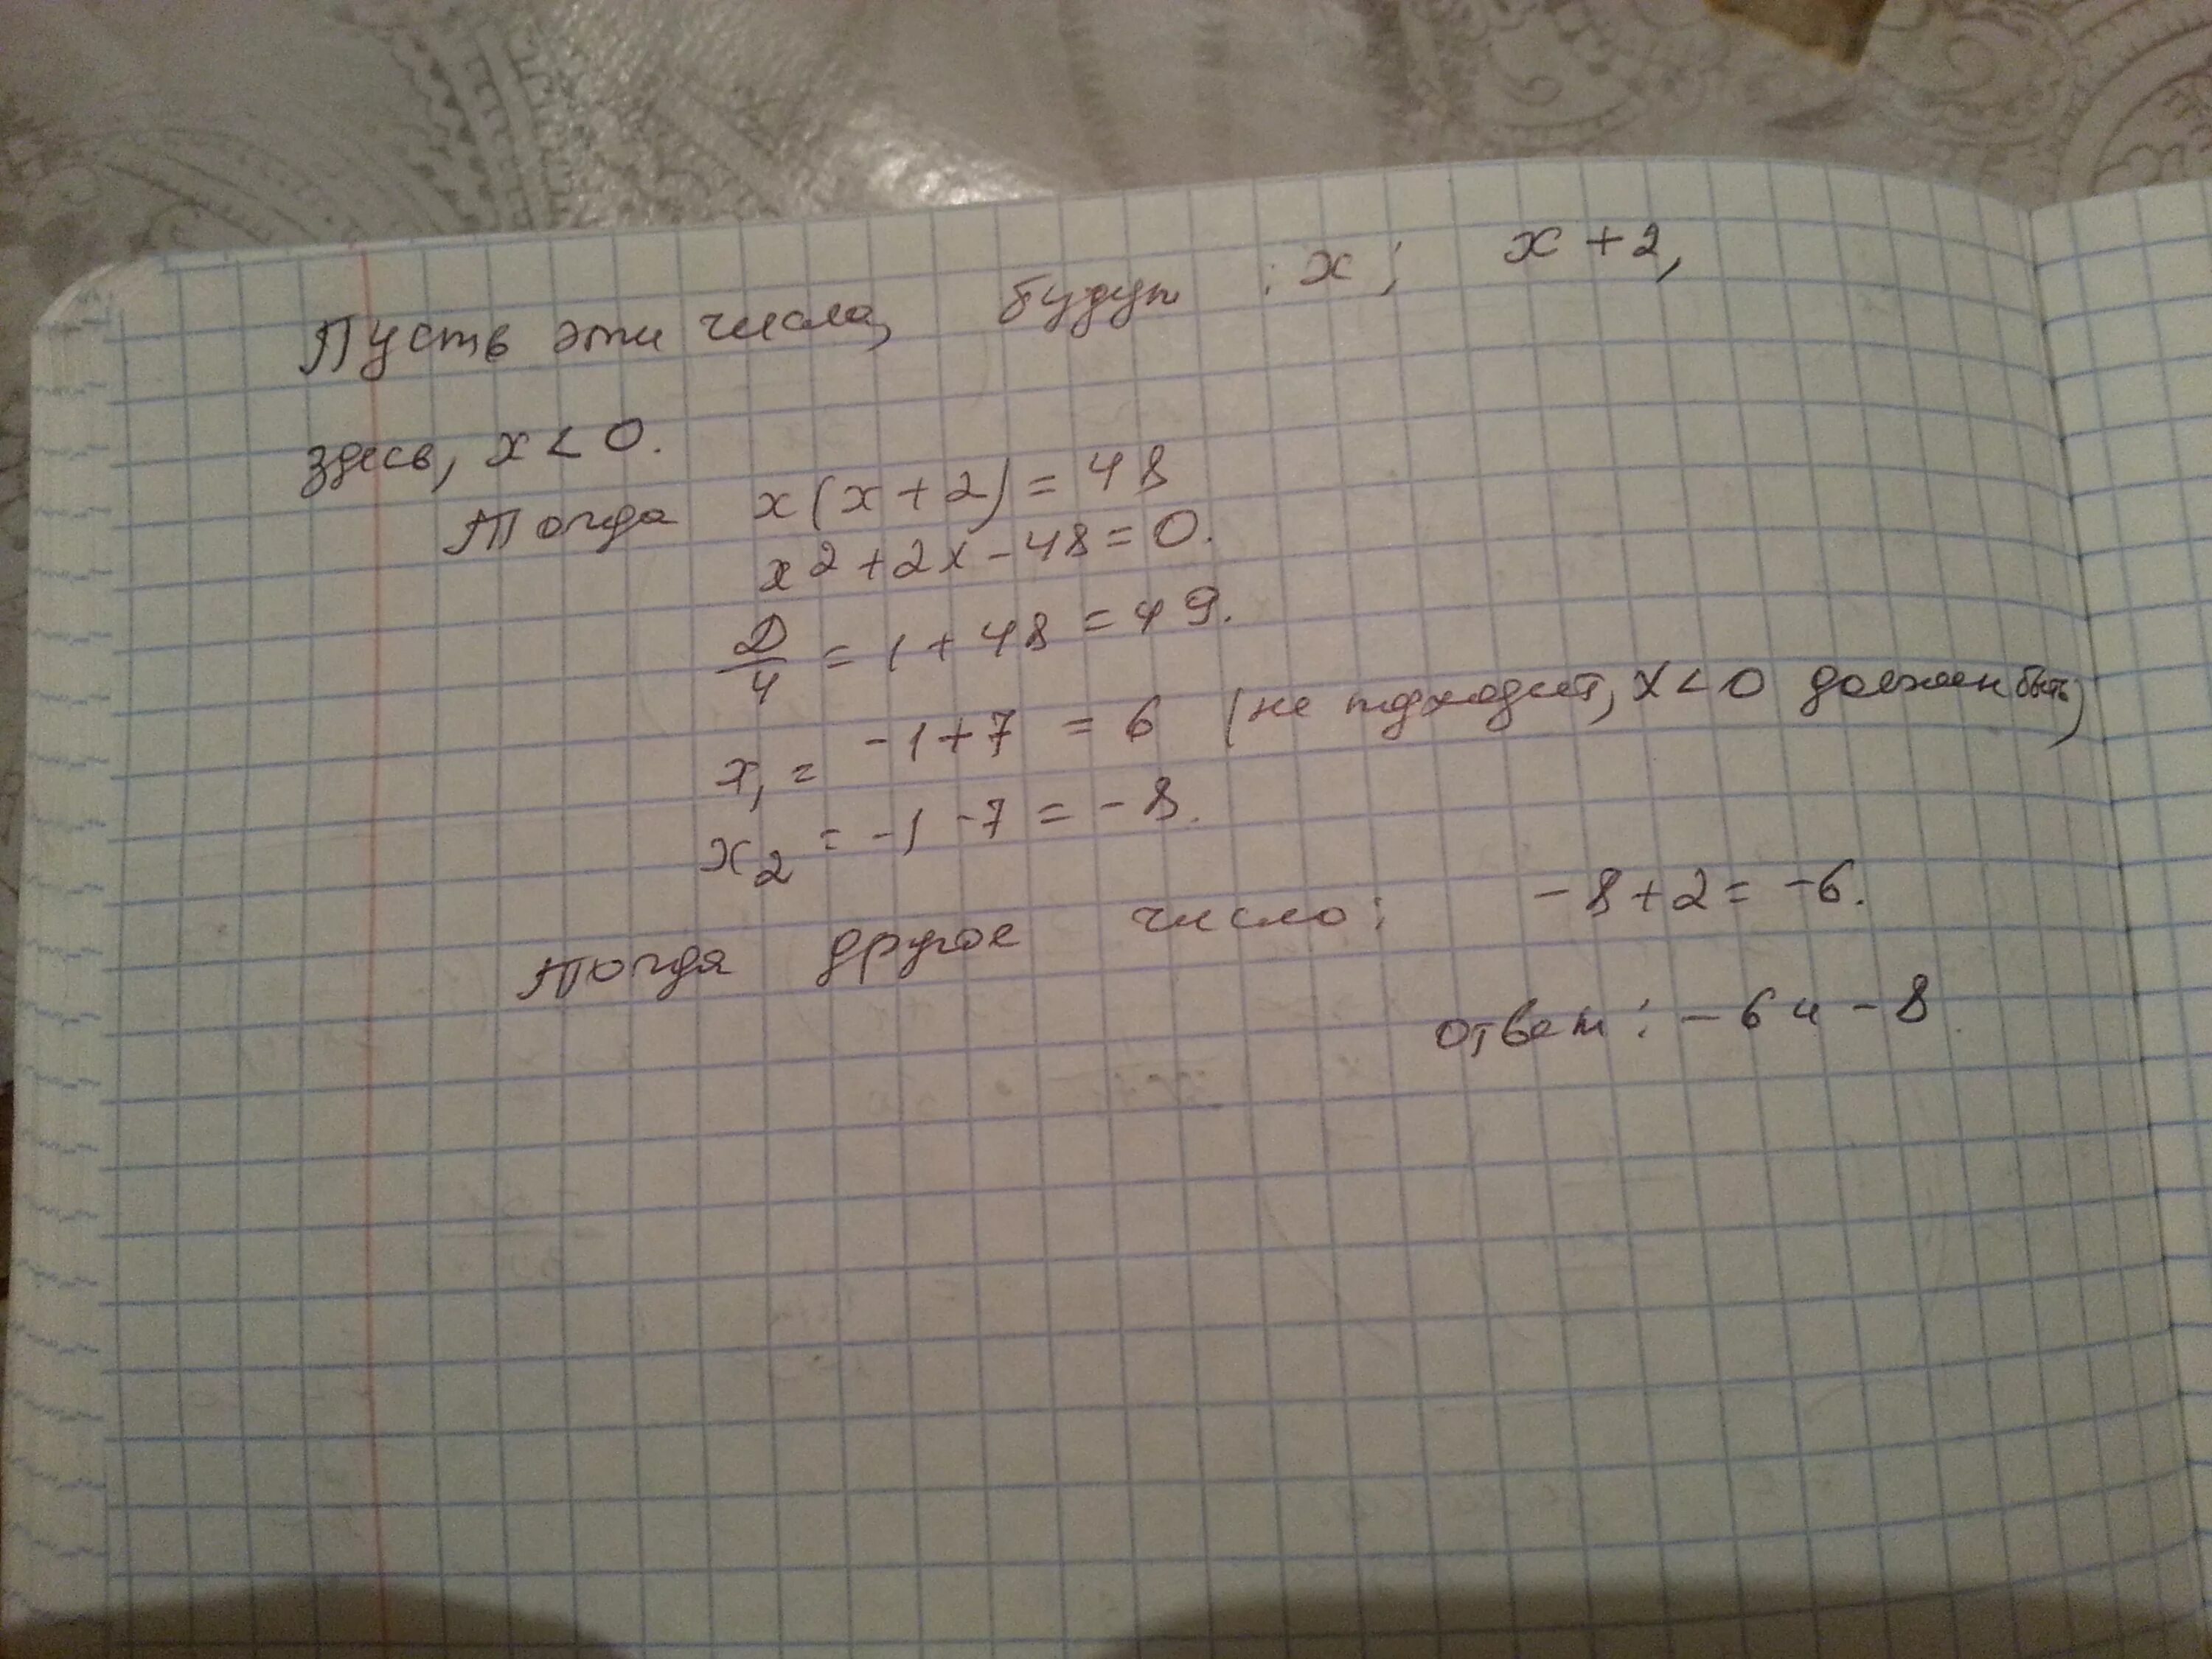 Пусть эти числа, будут : x; x + 2,
здесь, x < 0.
Тогда x(x+2) = 48
x² + 2x - 48 = 0.
D/4 = 1 + 48 = 49.
x₁ = -1+7 = 6 (не подходит, x < 0 должен быть)
x₂ = -1 -7 = -8.
Тогда другое число: -8+2 = -6.
Ответ: -6 и -8.